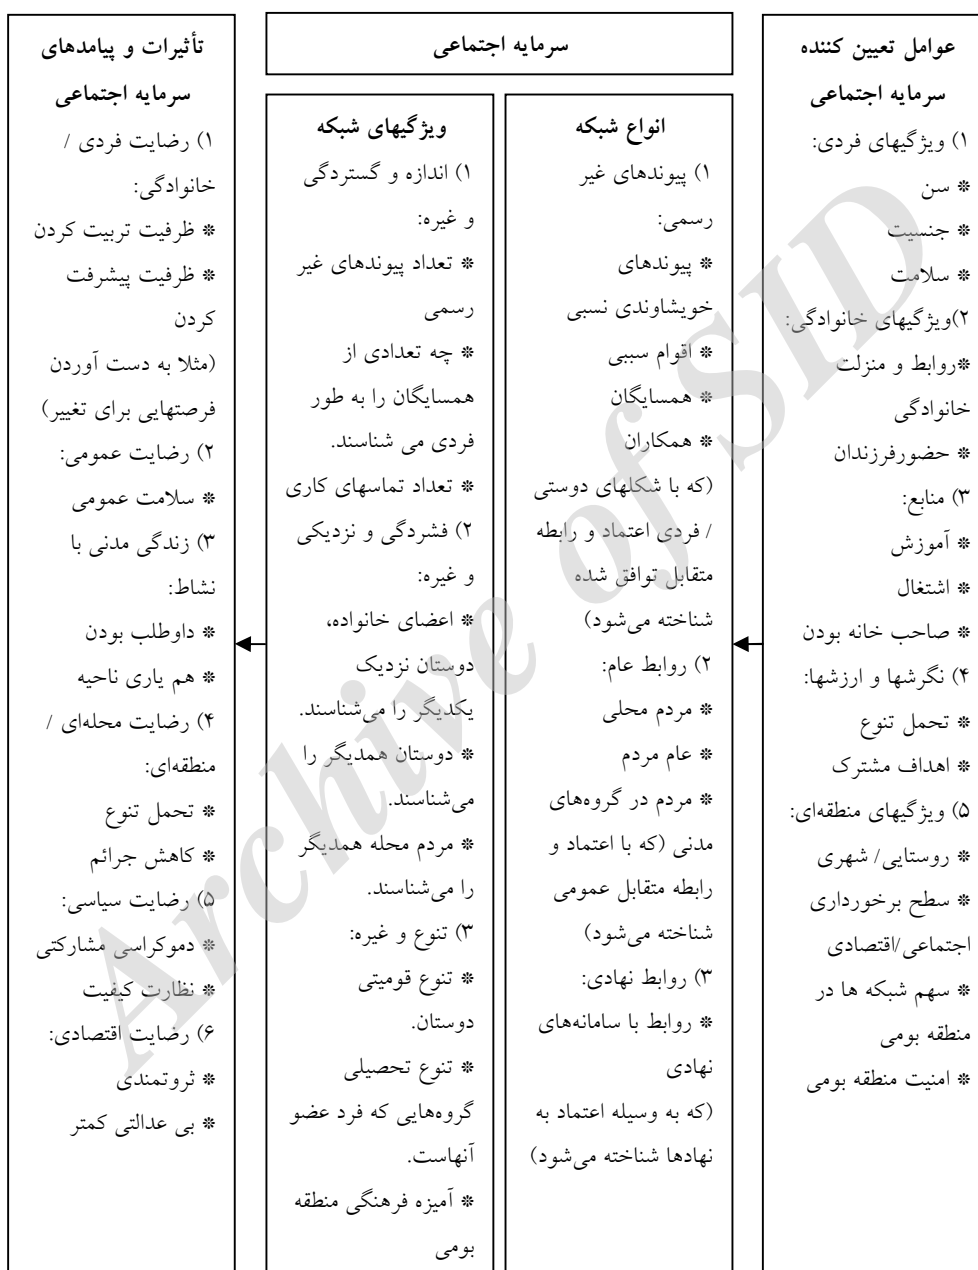 عوامل تعیین کننده
سرمایه اجتماعی
۱) ویژگیهای فردی:
* سن
* جنسیت
* سلامت
۲)ویژگیهای خانوادگی:
*روابط و منزلت
خانوادگی
* حضورفرزندان
۳) منابع:
* آموزش
* اشتغال
* صاحب خانه بودن
۴) نگرشها و ارزشها:
* تحمل تنوع
* اهداف مشترک
۵) ویژگیهای منطقه‌ای:
* روستایی/ شهری
* سطح برخورداری
اجتماعی/اقتصادی
* سهم شبکه ها در
منطقه بومی
* امنیت منطقه بومی
سرمایه اجتماعی
انواع شبکه
۱) پیوندهای غیر
رسمی:
* پیوندهای
خویشاوندی نسبی
* اقوام سببی
* همسایگان
* همکاران
(که با شکلهای دوستی
/ فردی اعتماد و رابطه
متقابل توافق شده
شناخته می‌شود)
۲) روابط عام:
* مردم محلی
* عام مردم
* مردم در گروه‌های
مدنی (که با اعتماد و
رابطه متقابل عمومی
شناخته می‌شود)
۳) روابط نهادی:
* روابط با سامانه‌های
نهادی
(که به وسیله اعتماد به
نهادها شناخته می‌شود)
ویژگیهای شبکه
۱) اندازه و گستردگی
و غیره:
* تعداد پیوندهای غیر
رسمی
* چه تعدادی از
همسایگان را به طور
فردی می شناسند.
* تعداد تماسهای کاری
۲) فشردگی و نزدیکی
و غیره:
* اعضای خانواده،
دوستان نزدیک
یکدیگر را می‌شناسند.
* دوستان همدیگر را
می‌شناسند.
* مردم محله همدیگر
را می‌شناسند.
۳) تنوع و غیره:
* تنوع قومیتی
دوستان.
* تنوع تحصیلی
گروه‌هایی که فرد عضو
آنهاست.
* آمیزه فرهنگی منطقه
بومی
تأثیرات و پیامدهای
سرمایه اجتماعی
۱) رضایت فردی /
خانوادگی:
* ظرفیت تربیت کردن
* ظرفیت پیشرفت
کردن
(مثلا به دست آوردن
فرصتهایی برای تغییر)
۲) رضایت عمومی:
* سلامت عمومی
۳) زندگی مدنی با
نشاط:
* داوطلب بودن
* هم یاری ناحیه
۴) رضایت محله‌ای /
منطقه‌ای:
* تحمل تنوع
* کاهش جرائم
۵) رضایت سیاسی:
* دموکراسی مشارکتی
* نظارت کیفیت
۶) رضایت اقتصادی:
* ثروتمندی
* بی عدالتی کمتر
Archive of SID